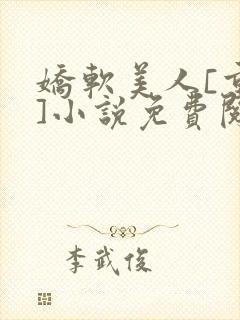 嬌軟美人[
]小說免費
李武俊